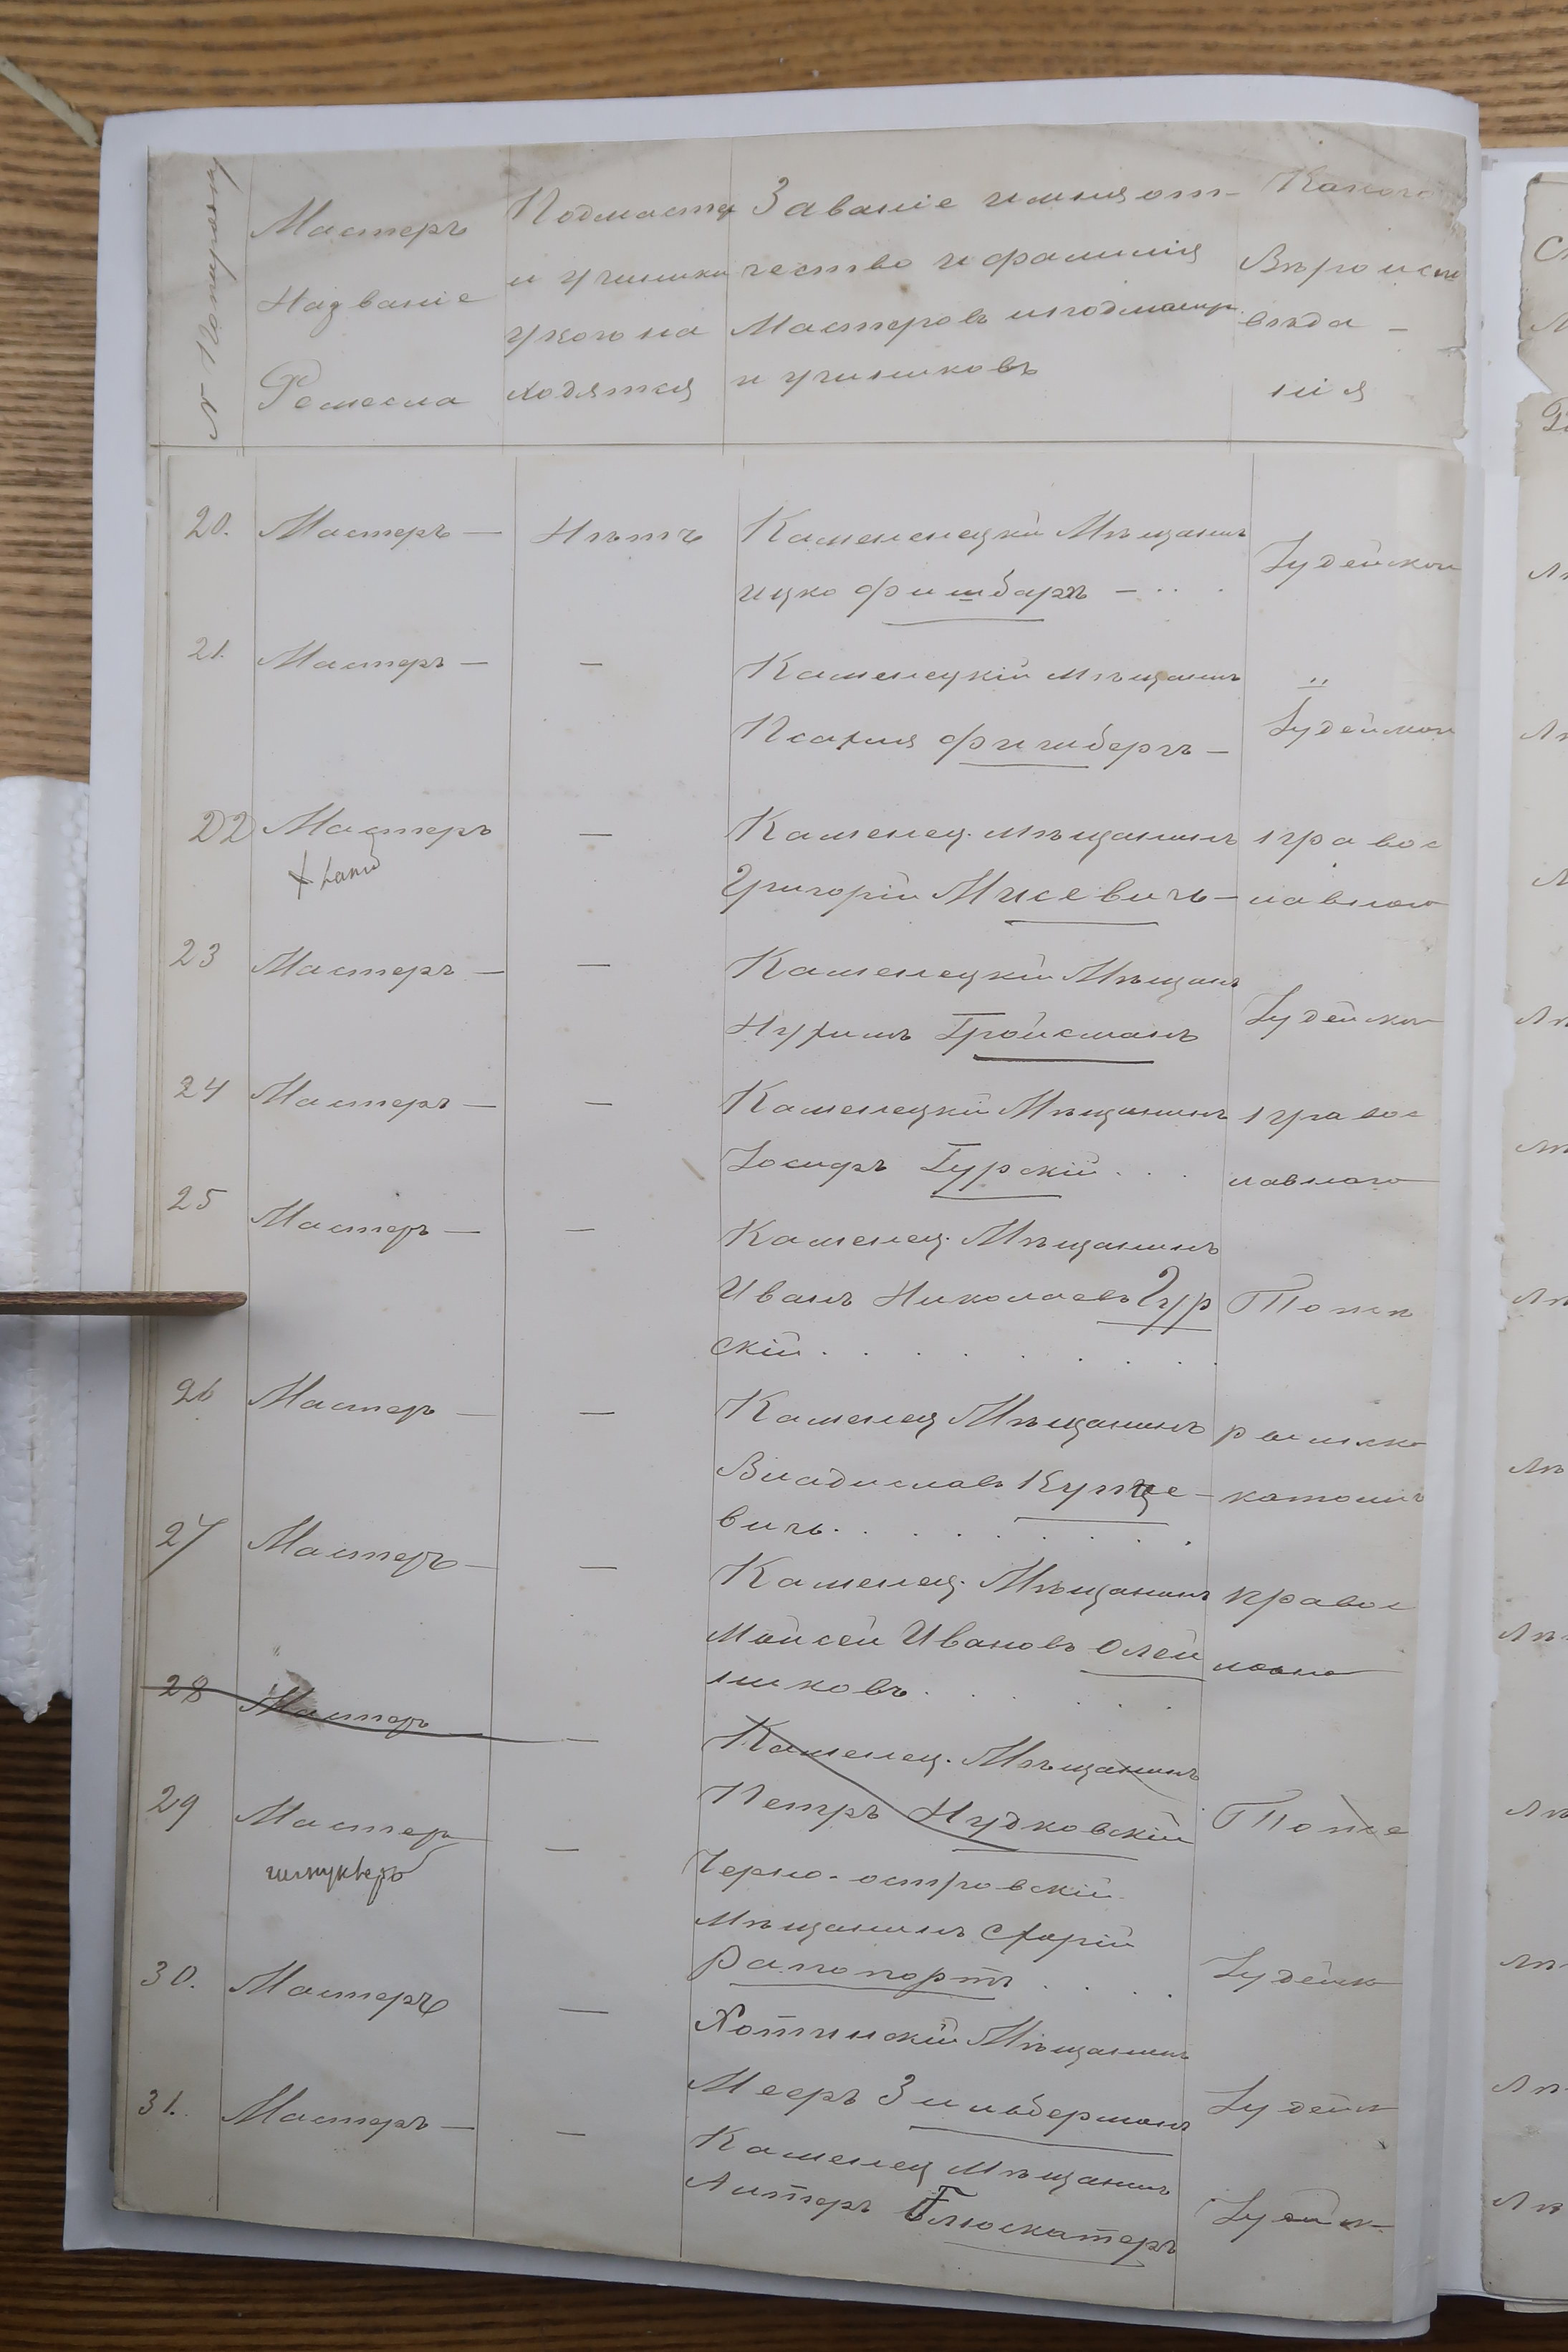 № по порядку
Мастеръ
Названіе
Ремесла
Подмастер
и ученики
у кого на
ходятся
Званіе имя от-
чество и фамилия
Мастеровъ и подмастер.
и учениковъ
Какого
Вѣроиспо
вѣда -
нія
20. Мастеръ — Нѣтъ Каменецкій Мѣщанинъ
Ицко Фишбаргъ — . . . Іудейском
21. Мастеръ — — Каменецкій мѣщанинъ "
Псахия Фишбергъ — Іудейском
22 Мастеръ — Каменец. мѣщанинъ право с
Григорій Мисевичъ — лавного
23 Мастеръ — — Каменецкій Мѣщан
Нухимъ Гройсманъ Іудейско
24 Мастеръ — — Каменецкій Мѣщанинъ право с
Іосифъ Гурскій . . . лавного
25 Мастеръ — — Каменец. Мѣщанинъ
Иванъ Николаевъ Гур Тоже
скій . . . . . . . .
26 Мастеръ — — Каменец Мѣщанинъ римско
Владиславъ — католич
вичъ . . . . . . .
27 Мастеръ — — Каменец. Мѣщанинъ правос
Мойсей Ивановъ Олей лавно
никовъ . . . . .
28 Мастеръ — — Каменец. Мѣщанинъ
Петръ Нудковскій Тоже
29 Мастеръ — Черно-островскій
Мѣщанинъ
Рапопортъ . . . Іудейск
30. Мастеръ — Хотинскій Мѣщанинъ
Мееръ Зильберманъ Іудейск
31. Мастеръ — — Каменец мѣщанинъ
Алтеръ Іудейск